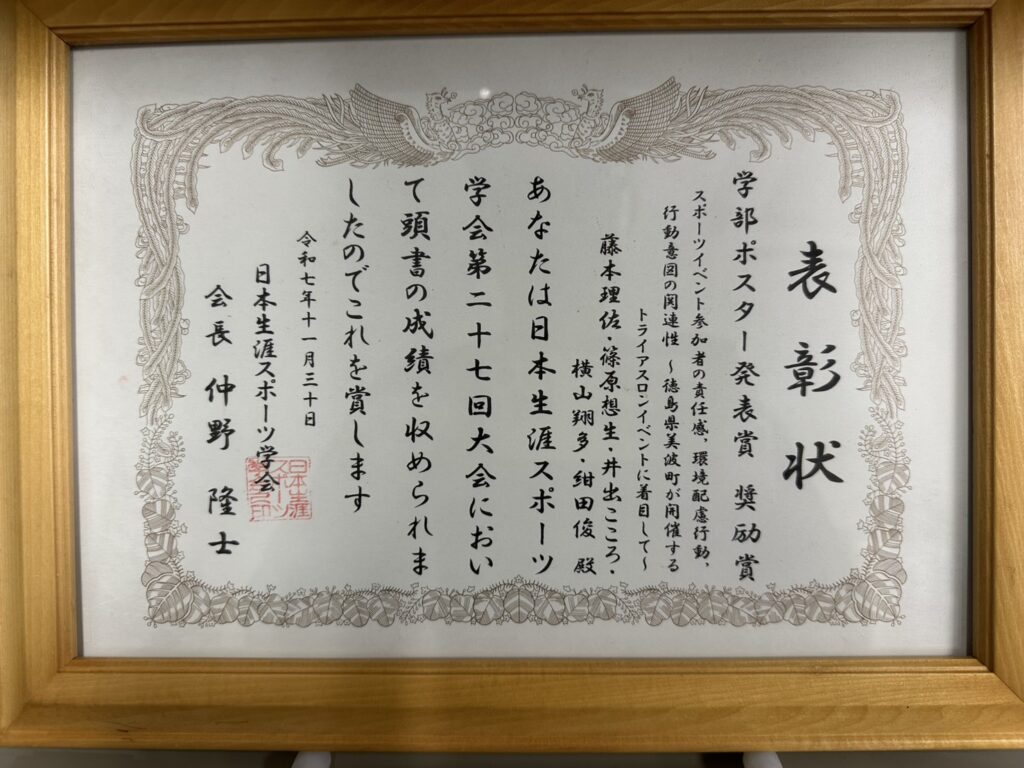 表彰状
学部ポスター発表賞 奨励賞
スポーツイベント参加者の責任感、環境配慮行動、
行動意図の関連性 ～徳島県美波町が開催する
トライアスロンイベントに着目して～
藤本理佐・篠原想生・井出こころ・
横山翔多・紺田俊 殿
あなたは日本生涯スポーツ
学会第二十七回大会におい
て頭書の成績を収められま
したのでこれを賞します
令和七年十一月三十日
日本生涯スポーツ学会
会長 仲野 隆士